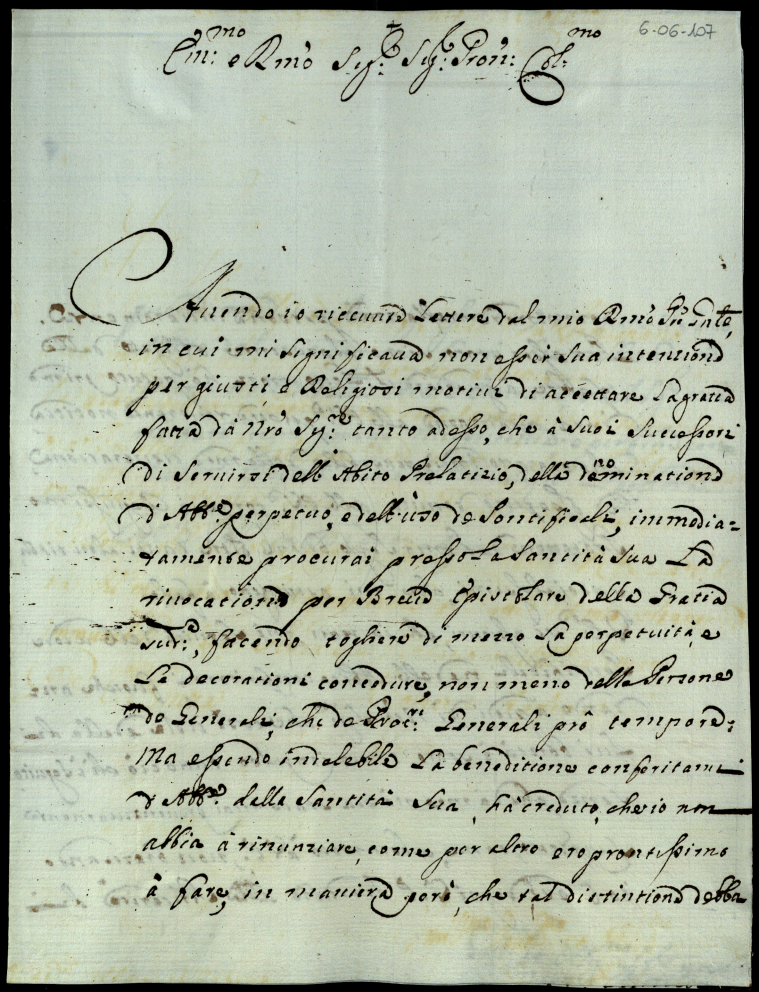 6-06-107
Em:mo e Rmo Sig:r Sig:r Pron: Col:mo
Auendo io riceuuto Lettere dal mio Rmo Pre Gnle,
in cui mi significaua non esser sua intentione
per giusti, e Religiosi motiui di accettare la gratia
fatta da Nro Sig:re tanto adesso, che à suoi Successori
di seruirsi dell'Abito Prelatizio, della denominatione
d'Abb:e perpetuo, e dell'uso de Pontificali, immedia=
tamente procurai presso la Santità Sua La
riuocatione per Breue Epistolare della Gratia
sud:a, facendo togliere di mezzo la perpetuità, e
Le decorationi concedute, non meno delle Persone
de Generali, che de Proc:ri Generali prò tempore:
Ma essendo indelebile La beneditione conferitami
d'Abb:e dalla Santità Sua, hà creduto, che io non
abbia à rinunziare, come per altro ero prontissimo
à fare, in maniera però, che tal distintione debba